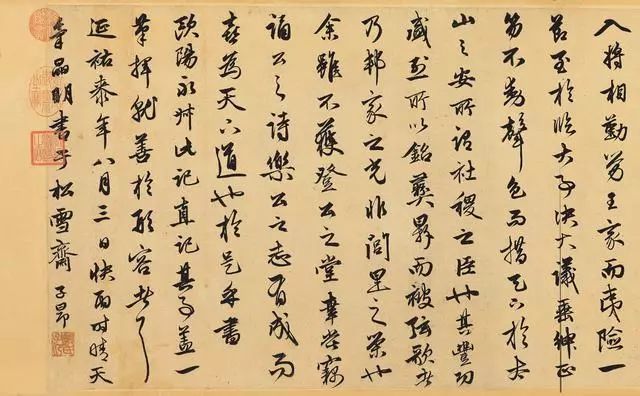 入將相勤勞王家而夷險一
節至於臨大事決大議垂紳正
笏不動聲色而措天下於太
山之安所謂社稷之臣也其豐功
盛烈所以銘彝鼎而被弦歌者
乃邦家之光非閭里之榮也
余雖不獲登公之堂幸嘗竊
誦公之詩樂公之志有成而
喜為天下道也於是乎書
歐陽永叔此記直記其事蓋一
筆揮就善於形容者
延祐泰年八月三日快雨時晴天
氣晶明書于松雪齋 子昂